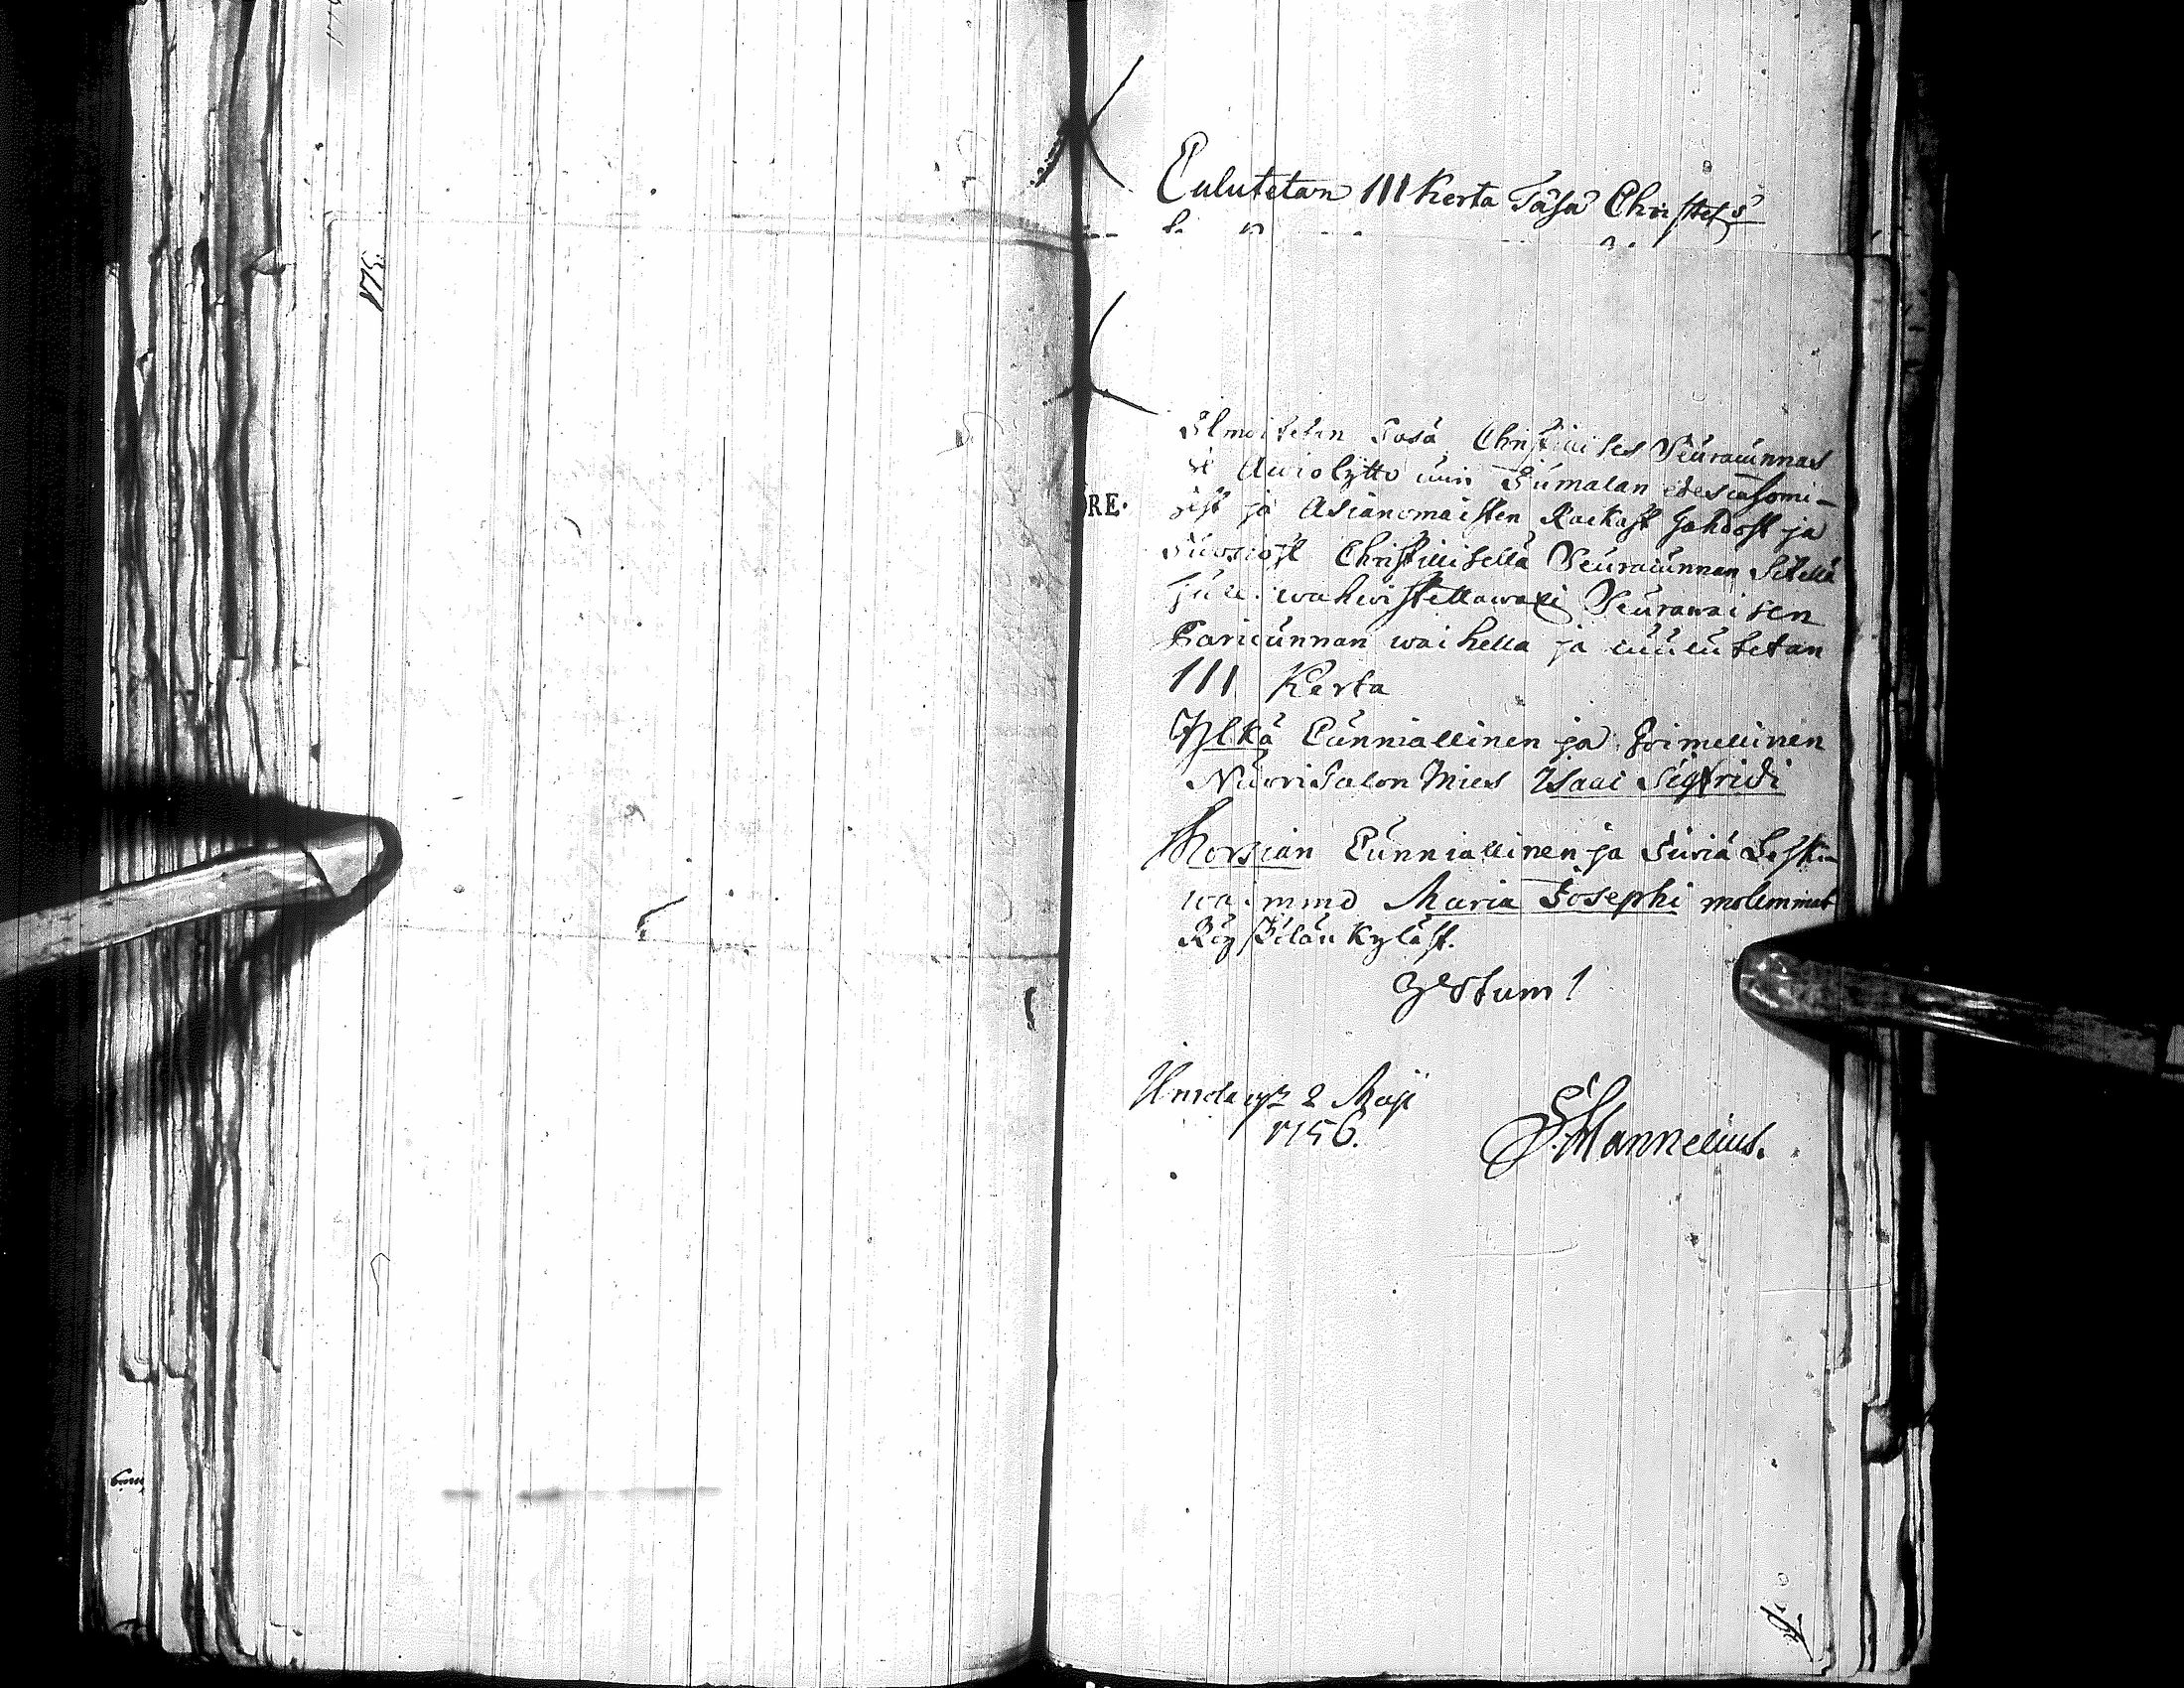 175
Culutetan III Kerta Täsä Christel s
RE.
Ilmoitetan Täsä Christilises Seuracunnas
se Awiolijtto cuin Jumalan edescadzomi-
sest ja Asianomaisten Rackast Hahdost ja
Suosiost Christilisellä Seuracunnan Sitellä
wahwistettawaxi Seurawaisen
Pariscunnan waihella ja cuulutetan
III Kerta
Ylkä Cunniallinen ja Hoimellinen
Nuori Talon Mies Isaac Sigfridi
Morsian Cunniallinen ja Siviä Leski
waimmo Maria Josephi molemmat
Kyläst.
Testum!
2 Maji
1756.
S. Mannelius.